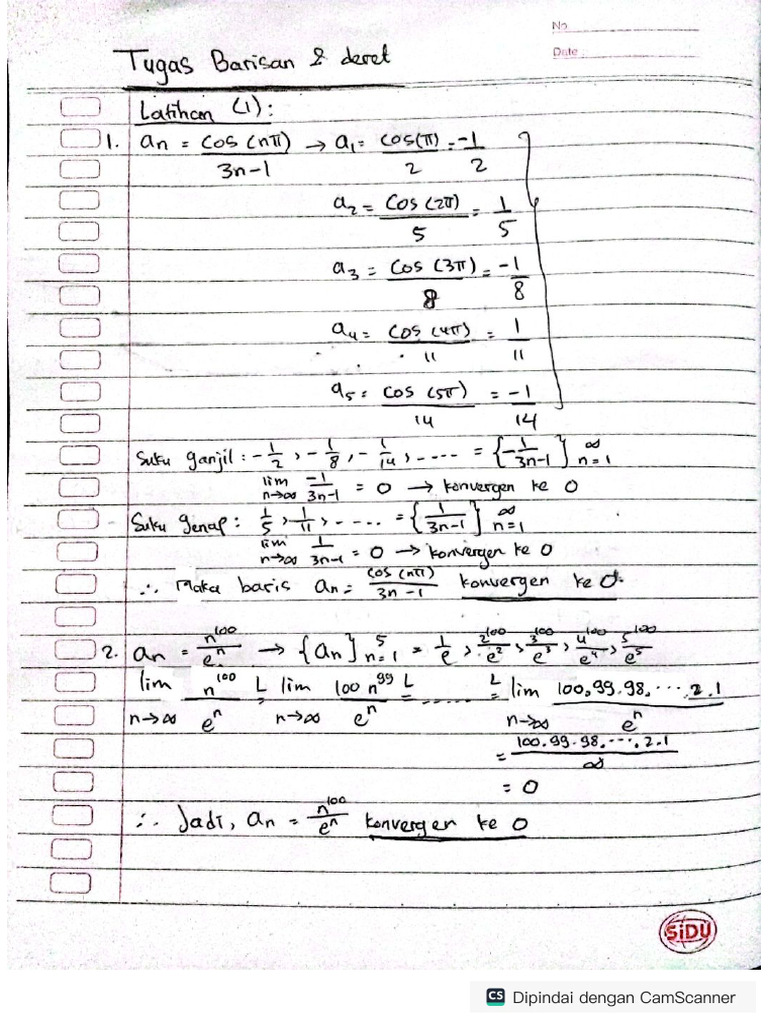 No.
Date :
Tugas Barisan & deret
Latihan (1):
1. an = cos(nπ)/3n-1 → a₁ = cos(π)/2 = -1/2
a₂ = cos(2π)/5 = 1/5
a₃ = cos(3π)/8 = -1/8
a₄ = cos(4π)/11 = 1/11
a₅ = cos(5π)/14 = -1/14
Suku ganjil : -1/2, -1/8, -1/14, .... = {-1/3n-1}∞ n=1
lim n→∞ -1/3n-1 = 0 → konvergen ke 0
Suku genap : 1/5, 1/11, .... = {1/3n-1}∞ n=1
lim n→∞ 1/3n-1 = 0 → konvergen ke 0
∴ Maka baris an = cos(nπ)/3n-1 konvergen ke 0.
2. an = n¹⁰⁰/eⁿ → {an}⁵ n=1 = 1/e, 2¹⁰⁰/e², 3¹⁰⁰/e³, 4¹⁰⁰/e⁴, 5¹⁰⁰/e⁵
lim n→∞ n¹⁰⁰/eⁿ L= lim n→∞ 100 n⁹⁹/eⁿ L= ...... L= lim n→∞ 100.99.98. ... .2.1/eⁿ
= 100.99.98. ... .2.1/∞
= 0
∴ Jadi, an = n¹⁰⁰/eⁿ konvergen ke 0
SiDU
CS Dipindai dengan CamScanner